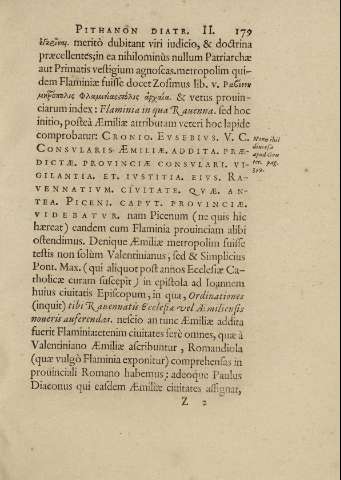 PITHANON DIATR. II. 179
meritò dubitant viri iudicio, & doctrina
præcellentes; in ea nihilominùs nullum Patriarchæ
aut Primatis vestigium agnoscas. metropolim qui-
dem Flaminiæ fuisse docet Zosimus lib. v. Ραβέννα
μητρόπολις Φλαμινίας πόλις ἀρχαία. & vetus prouin-
ciarum index: Flaminia in qua Rauenna. sed hoc
initio, posteà Æmiliæ attributam veteri hoc lapide
comprobatur: CRONIO. EVSEBIVS. V. C.
CONSVLARIS ÆMILIÆ. ADDITA. PRÆ-
DICTÆ. PROVINCIÆ CONSVLARI. VI-
GILANTIA. ET. IVSTITIA. EIVS. RA-
VENNATIVM. CIVITATE. QVÆ. AN-
TEA. PICENI. CAPVT. PROVINCIÆ.
VIDEBATVR. nam Picenum (ne quis hic
hæreat) eandem cum Flaminia prouinciam alibi
ostendimus. Denique Æmiliæ metropolim fuisse
testis non solùm Valentinianus, sed & Simplicius
Pont. Max. (qui aliquot post annos Ecclesiæ Ca-
tholicæ curam suscepit) in epistola ad Ioannem
huius ciuitatis Episcopum, in qua, Ordinationes
(inquit) tibi Rauennatis Ecclesiæ vel Æmiliensis
noueris auferendas. nescio an tunc Æmiliæ addita
fuerit Flaminia: etenim ciuitates ferè omnes, quæ à
Valentiniano Æmiliæ ascribuntur, Romandiola
(quæ vulgò Flaminia exponitur) comprehensas in
prouinciali Romano habemus: adeoque Paulus
Diaconus qui easdem Æmiliæ ciuitates assignat,
Z 2
apud Gru
ter. pag.